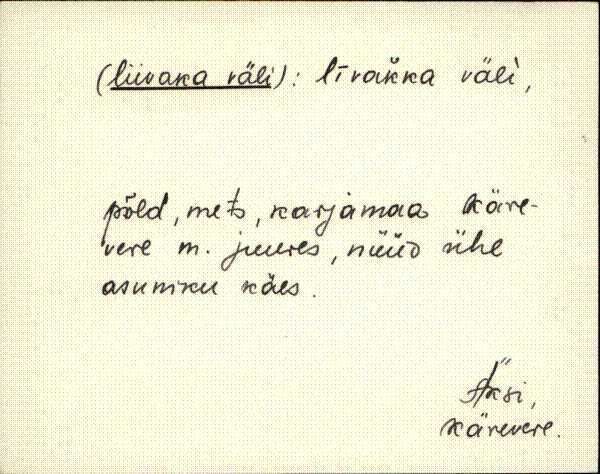 (liivaka väli): līvak̆ka väl̀i,
põld, mets, karjamaa Käre-
vere m. juures, nüüd ühe
asuniku käes.
Äksi,
Kärevere.